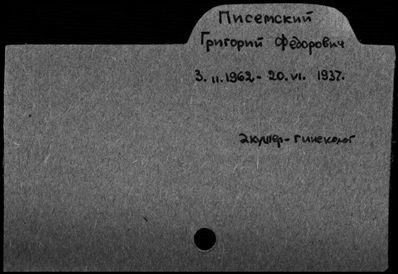 Писемский
Григорий Федорович
3. II. 1962 - 20. VI. 1937.
акушер-гинеколог